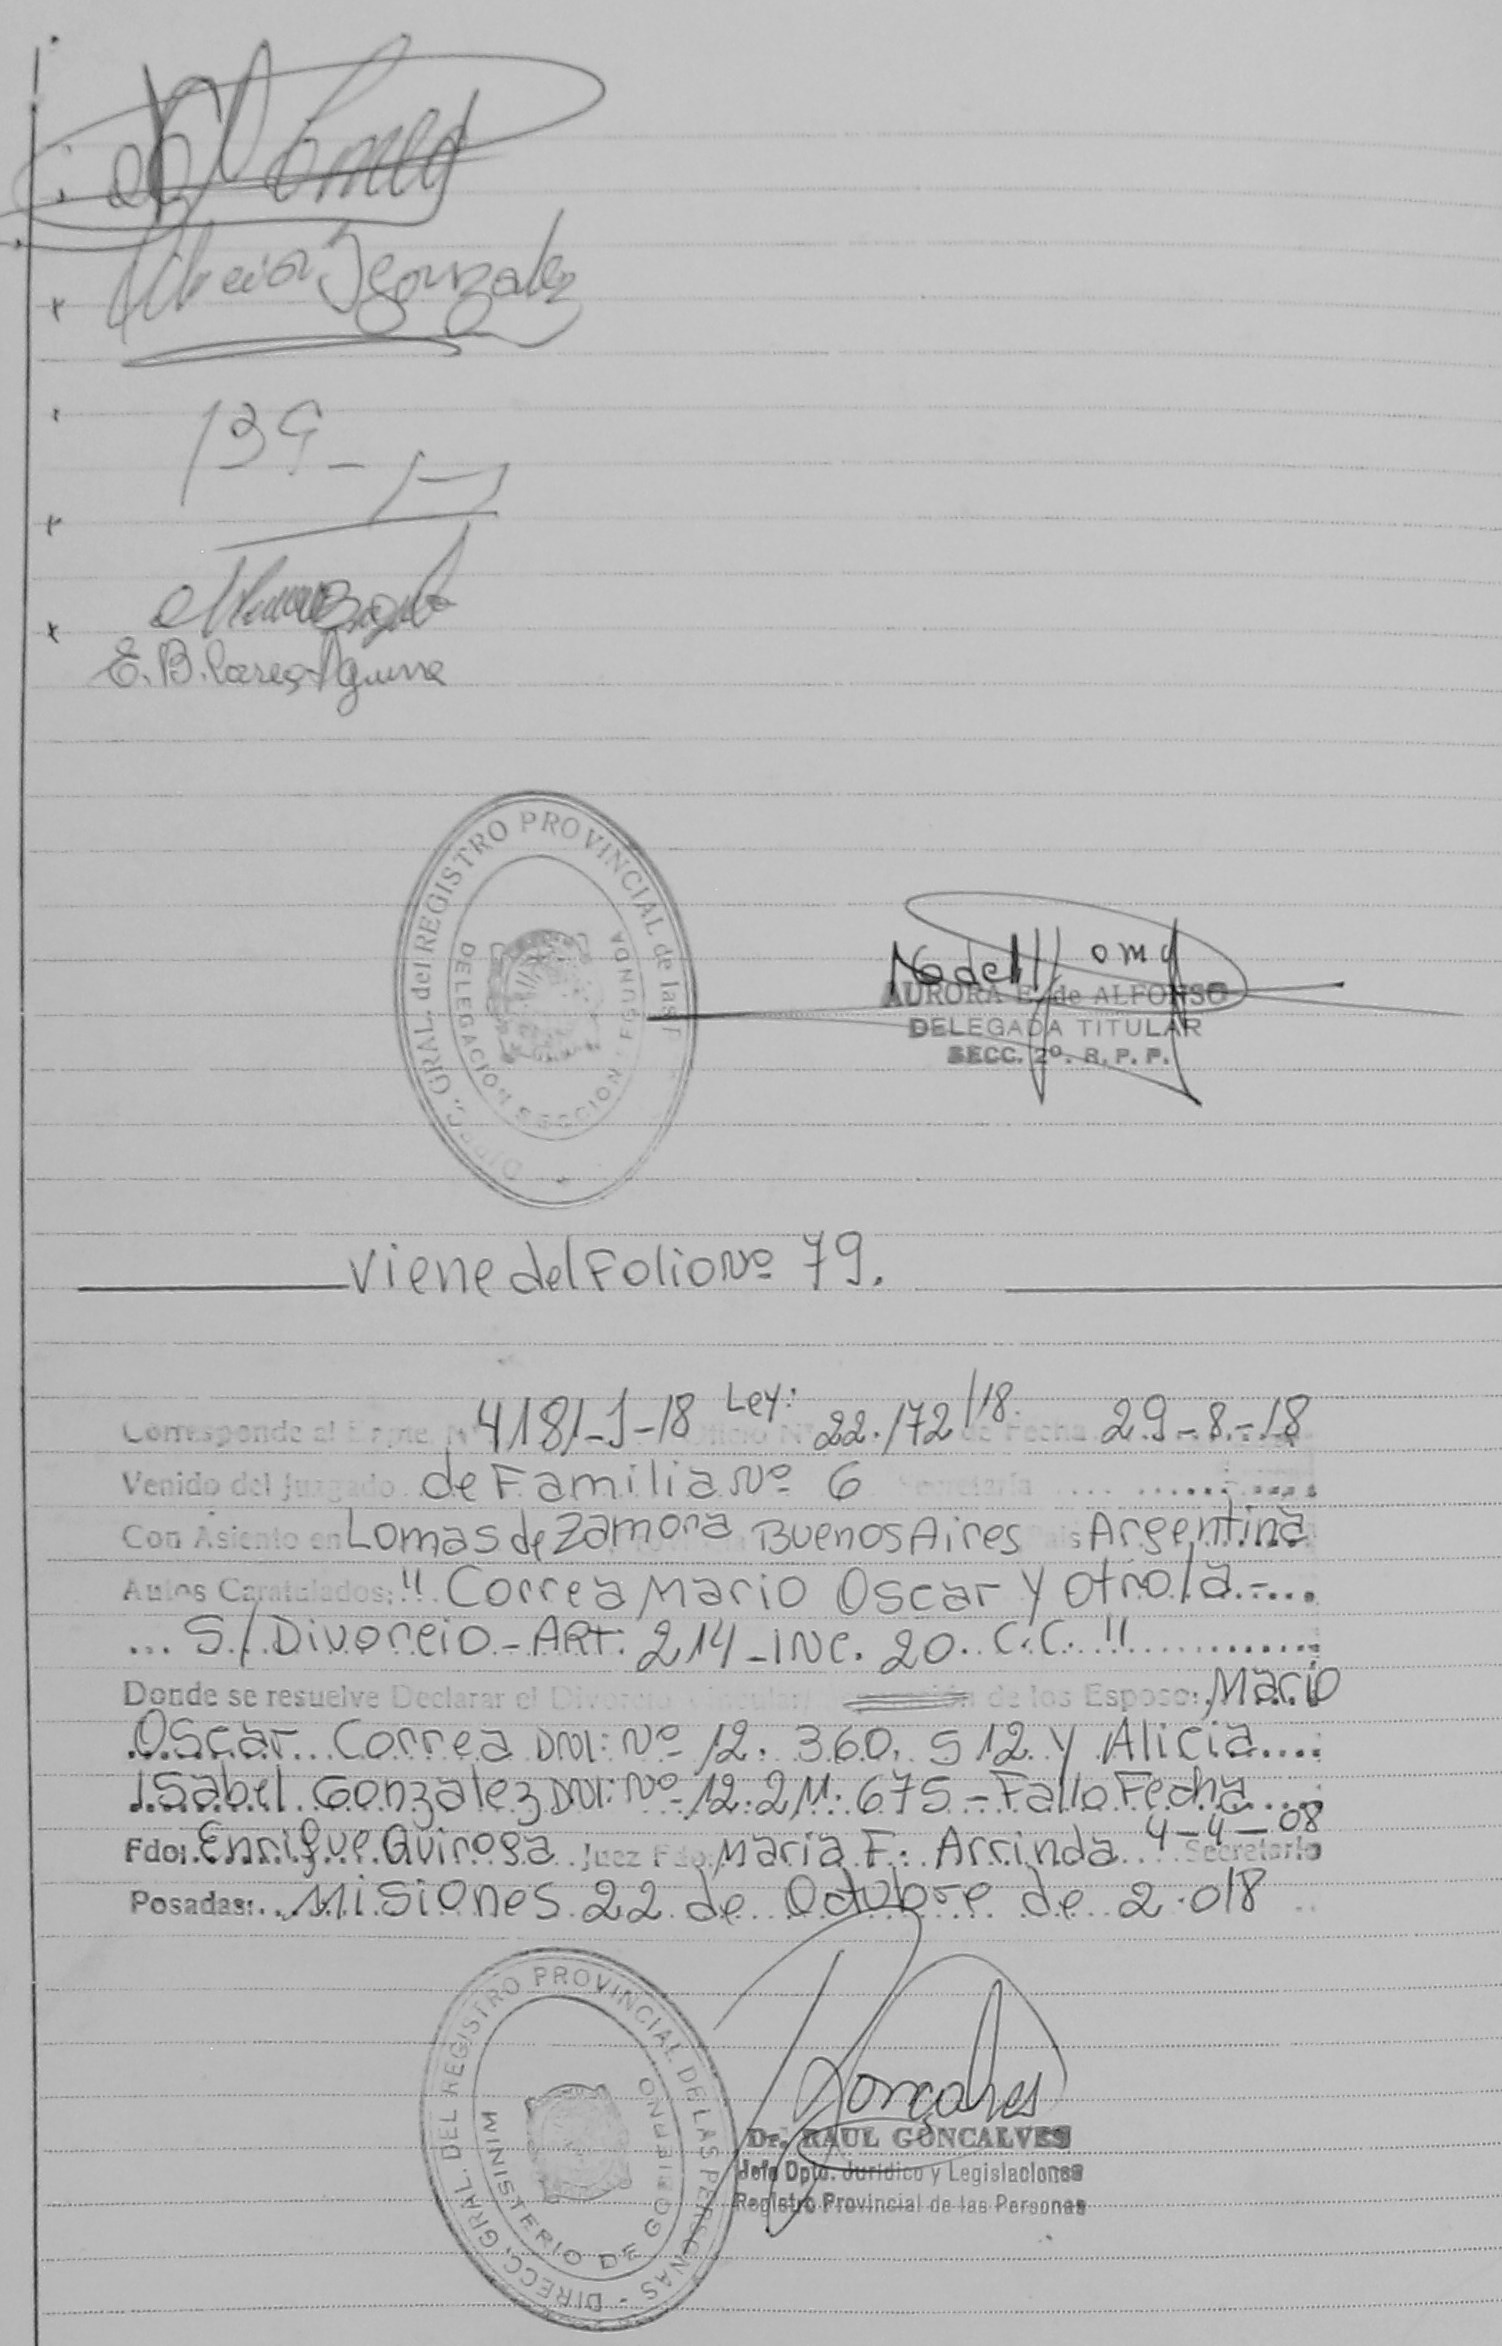 Alicia I Gonzalez
E. B. Pares Aguirre
DIREC. GRAL. del REGISTRO PROVINCIAL de las P
DELEGACION SECCION SEGUNDA
AURORA E. de ALFONSO
DELEGADA TITULAR
SECC. 2º. R. P. P.
Viene del Folio Nº 79.
Corresponde al Expte. Nº 4181-J-18 Ley: Oficio Nº 22.172/18. de Fecha 29-8-18
Venido del Juzgado de Familia Nº 6 Secretaría
Con Asiento en Lomas de Zamora Buenos Aires País Argentina
Autos Caratulados: "Correa Mario Oscar y otro/a.-
S/Divorcio - ART. 214 - INC. 20. C.C."
Donde se resuelve Declarar el Divorcio Vincular/ de los Esposo: Mario
Oscar Correa DNI: Nº 12.360.512 y Alicia
Isabel Gonzalez DNI: Nº 12.211.675 - Fallo Fecha
4-4-08
Fdo: Enrique Quiroga Juez Fdo: Maria F. Arrinda Secretario
Posadas: Misiones 22 de Octubre de 2.018
DIRECC. GRAL. DEL REGISTRO PROVINCIAL DE LAS PERSONAS -
MINISTERIO DE GOBIERNO
Goncalves
Dr. RAUL GONCALVES
Jefe Dpto. Juridico y Legislaciones
Registro Provincial de las Personas